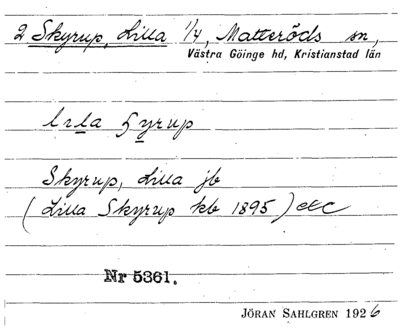 2 Skyrup, Lilla 1/4, Matteröds sn,
Västra Göinge hd, Kristianstad län
Skyrup, Lilla jb
(Lilla Skyrup kb 1895) etc
Nr 5361.
JÖRAN SAHLGREN 1926